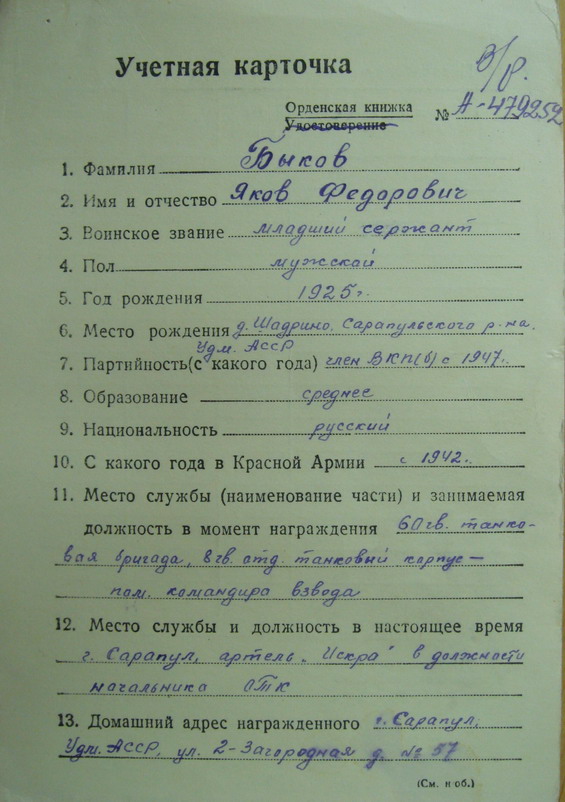 в/р.
Учетная карточка
Орденская книжка
Удостоверение № А-479252
1. Фамилия Быков
2. Имя и отчество Яков Федорович
3. Воинское звание младший сержант
4. Пол мужской
5. Год рождения 1925 г.
6. Место рождения д. Шадрино, Сарапульского р-на,
Удм. АССР
7. Партийность(с какого года) член ВКП(б) с 1947.
8. Образование среднее
9. Национальность русский
10. С какого года в Красной Армии с 1942.
11. Место службы (наименование части) и занимаемая
должность в момент награждения 60 гв. танко-
вая бригада, 8 гв. отд. танковый корпус –
пом. командира взвода
12. Место службы и должность в настоящее время
г. Сарапул, артель „Искра" в должности
начальника ОТК
13. Домашний адрес награжденного г. Сарапул,
Удм. АССР, ул. 2-Загородная д. № 57
(См. н об.)